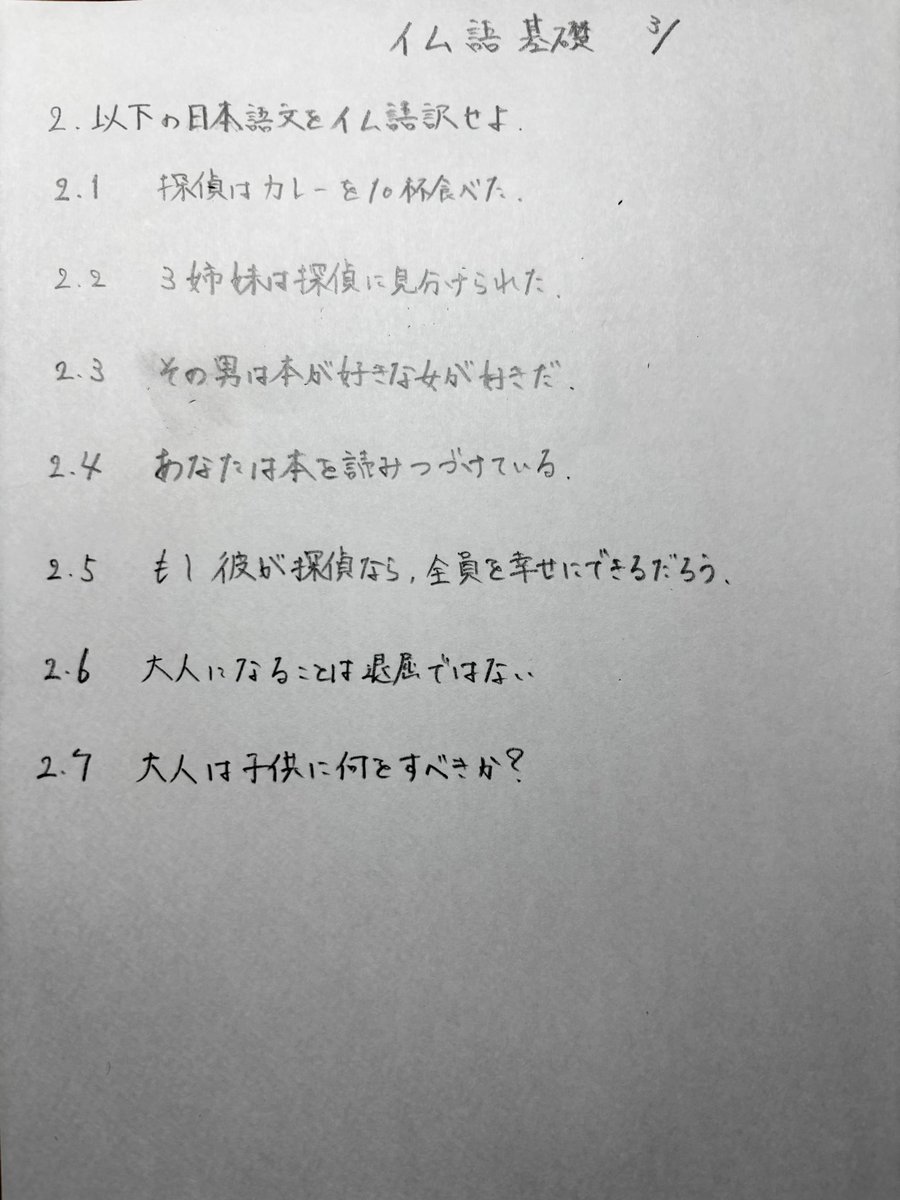 イム語基礎 3/
2. 以下の日本語文をイム語訳せよ.
2.1 探偵はカレーを10杯食べた.
2.2 3姉妹は探偵に見分けられた.
2.3 その男は本が好きな女が好きだ.
2.4 あなたは本を読みつづけている.
2.5 もし彼が探偵なら, 全員を幸せにできるだろう.
2.6 大人になることは退屈ではない
2.7 大人は子供に何をすべきか?